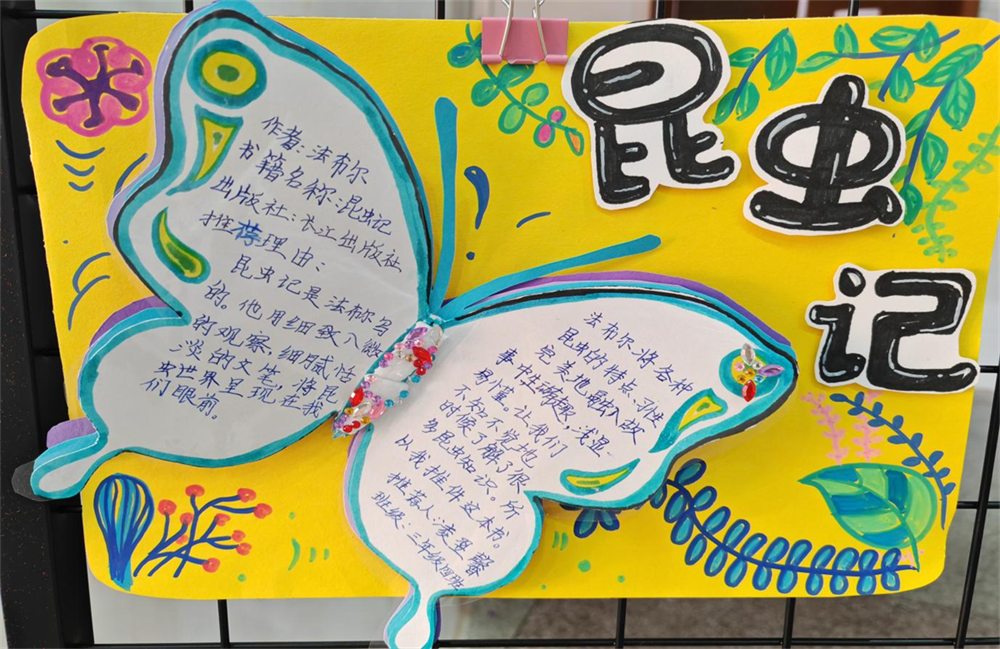 昆虫记
作者:法布尔
书籍名称:昆虫记
出版社:长江出版社
推荐理由:
昆虫记是法布尔写
的。他用细致入微
的观察,细腻恬
淡的文笔,将昆
虫世界呈现在我
们眼前。
法布尔将各种
昆虫的特点、习性
完美地融入故
事中生动有趣,浅显
易懂。让我们
不知不觉地
的时候了解了很
多昆虫知识。所
以我推件这本书。
推荐人:凌
班级:三年级四班